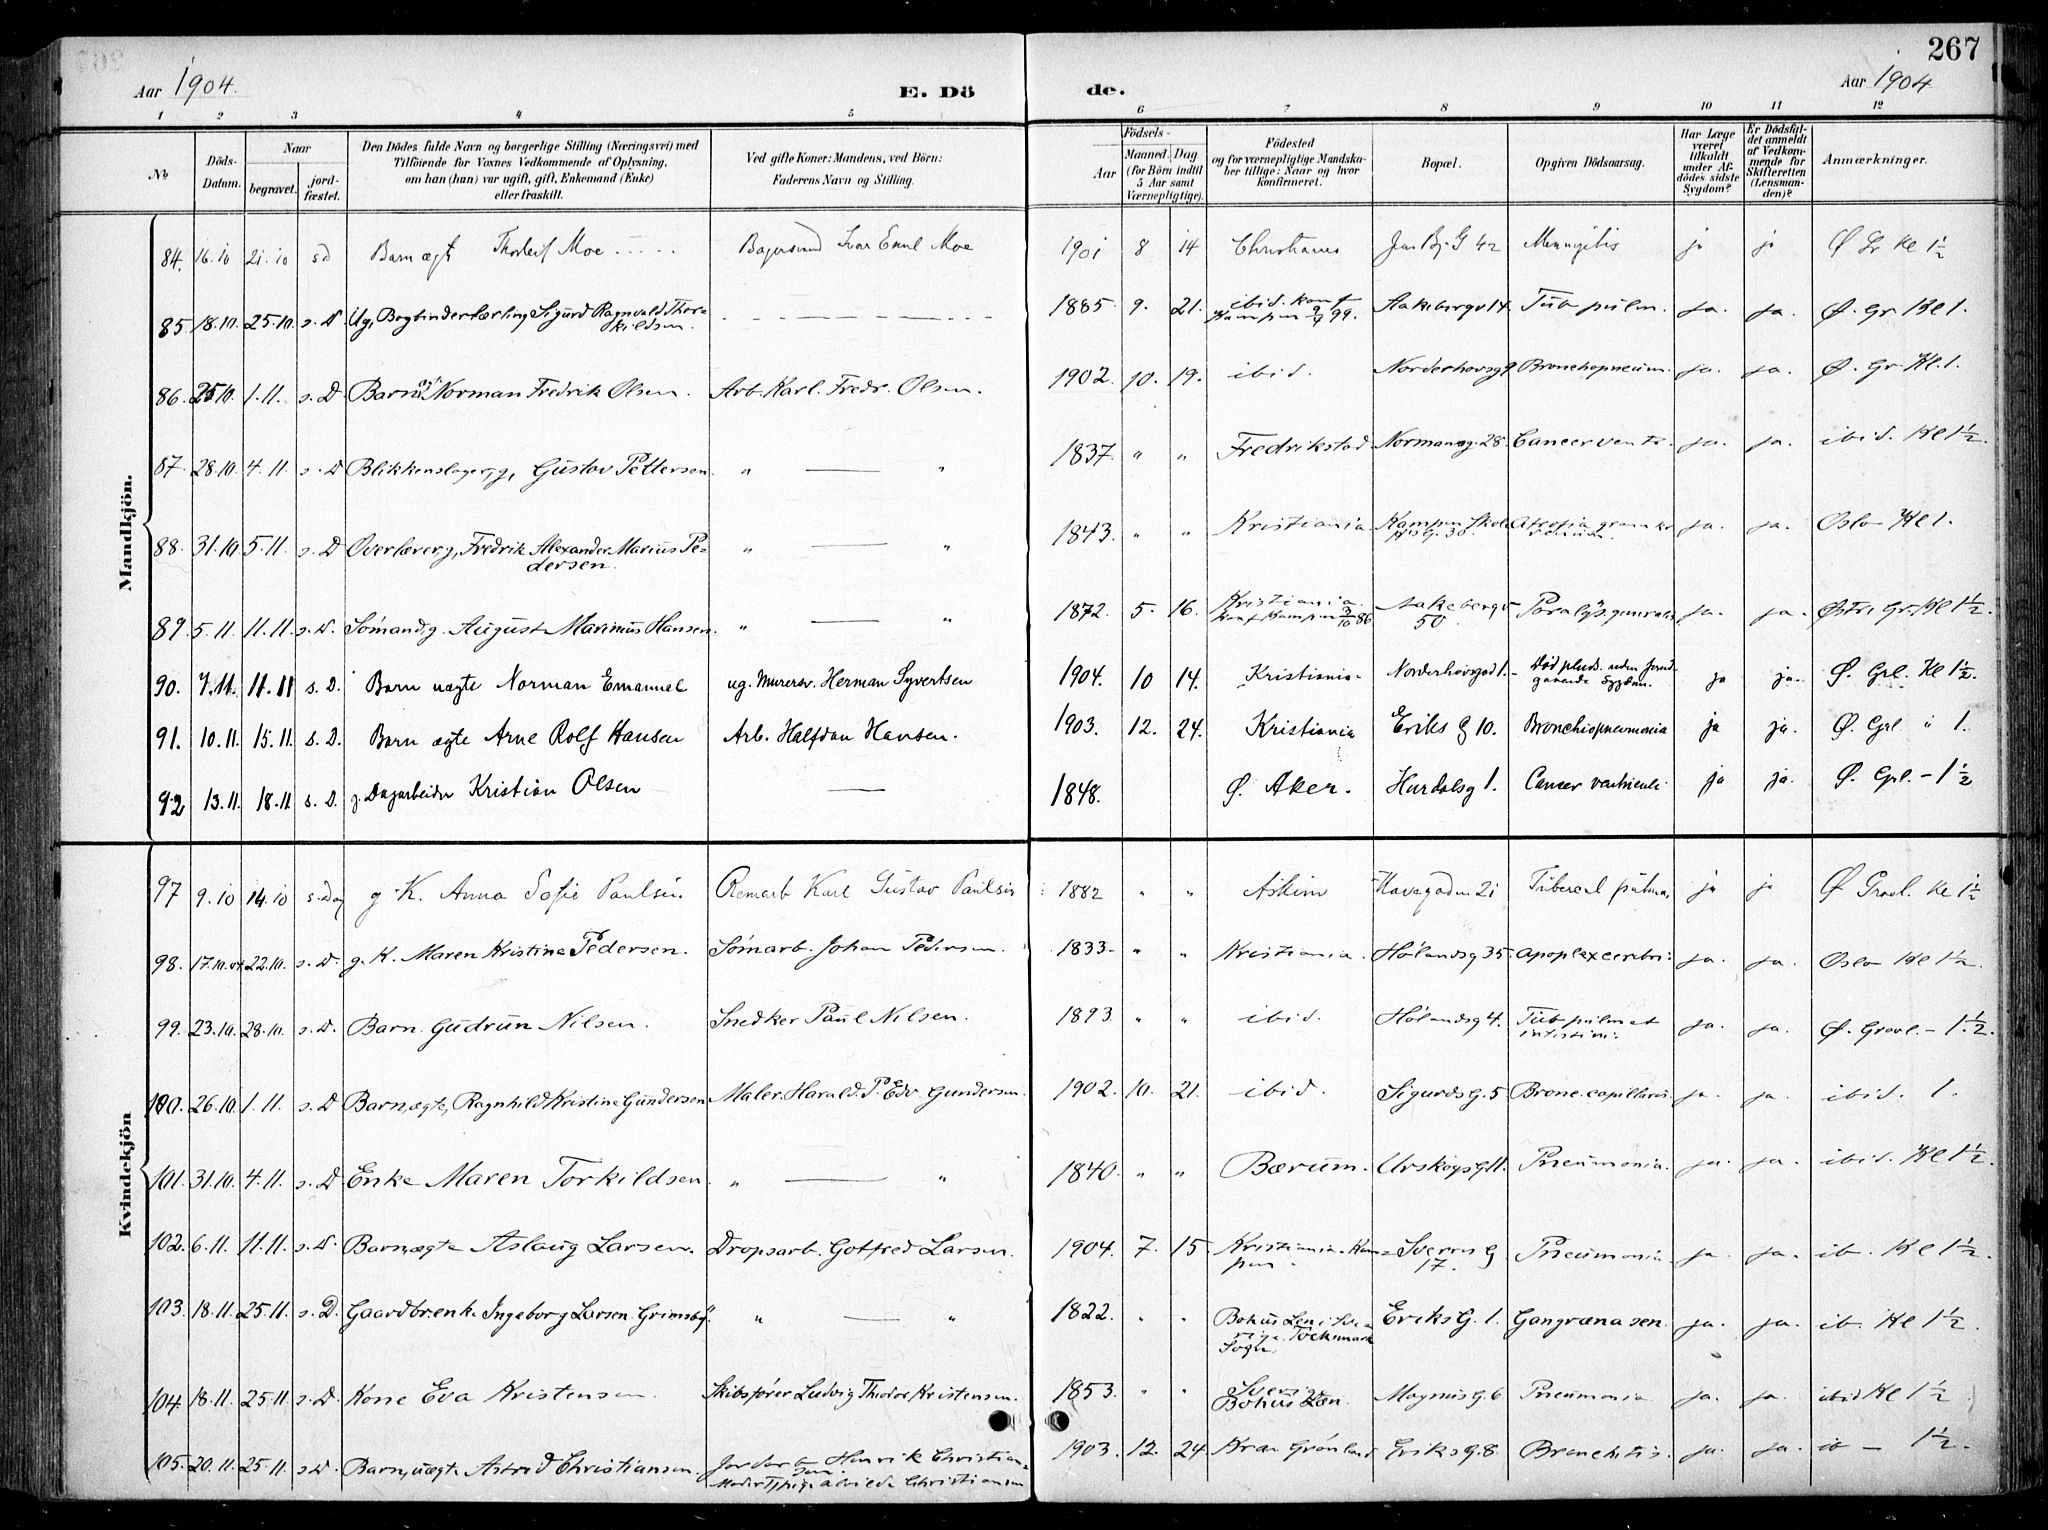 267
Aar 1904.
E. Dö
de.
Aar 1904
1 2 3 4 5 6 7 8 9 10 11 12
No
Döds-Datum.
Naar
begravet.
jord-fæstet.
Den Dödes fulde Navn og borgerlige Stilling (Næringsvei) med
Tilföiende for Voxnes Vedkommende af Oplysning,
om han (hun) var ugift, gift, Enkemand (Enke)
eller fraskilt.
Ved gifte Koner: Mandens, ved Börn:
Faderens Navn og Stilling.
Födsels-
Aar
Maaned. Dag
(for Börn indtil
5 Aar samt
Værnepligtige).
Födested
og for værnepligtige Mandska-
ber tillige: Naar og hvor
konfirmeret.
Bopæl.
Opgiven Dödsaarsag.
Har Læge
været
tilkaldt
under Af-
dödes sidste
Sygdom?
Er Dödsfal-
det anmeldt
af Vedkom-
mende for
Skifteretten
(Lensman-
den)?
Anmærkninger.
Mandkjön.
84. 16.10 21.10 sd Barn ægt Thorleif Moe Ivar Emil Moe 1901 8 14 Christiania 42 Meningitis ja ja Ø Gr Kl 1½
85. 18.10. 25.10. s.D Ug. Bogbinderlærling Sigurd Ragnvald Thor-
kildsen. 1885 9. 21. ibid. konf
Kampen 99. Aakebergv 14 Tub pulm. ja. ja. Ø. Gr. Kl 1.
86. 25.10. 1.11. s.D. Barn Norman Fredrik Olsen. Arb. Karl. Fredr. Olsen. 1902. 10. 19. ibid. Norderhovsg 9 Bronchopneum. ja. ja. Ø. Gr Kl. 1.
87. 28.10. 4.11. s.D Blikkenslager, g, Gustav Pettersen. " — " 1837. " " Fredrikstad. Normansg. 28. Cancer ventr. ja. ja. ibid. Kl 1½.
88. 31.10. 5.11. s.D Overlærer g, Fredrik Alexander Marius Pe-
dersen. " — " 1843. " " Kristiania. Kampen Skole ja. ja. Oslo Kl 1.
89. 5.11. 11.11. s.D. Sömand g. August Marinius Hansen. " — " 1872. 5. 16. Kristiania.
Konf Kampen 86 Aakebergv
50. Paralys. generalis ja. ja. Østre Gr. Kl 1½.
90. 7.11. 11.11 s.D. Barn uægte Norman Emanuel ug. Murersv. Herman Syvertsen 1904. 10 14. Kristiania. Norderhovsgad 1. Död pluds. uden forud-
gaaende Sygdom. ja ja. Ø. Grl. Kl 1½.
91. 10.11. 15.11. s.D. Barn ægte Arne Rolf Hansen Arb. Halfdan Hansen. 1903. 12. 24. Kristiania Eriks g 10. Bronchiopneumonia ja ja. Ø. Grl " 1.
92 13.11. 18.11 s.D. g. Dagarbeider Kristian Olsen — 1848. Ø. Aker. Hurdalsg 1. Cancer ventriculi ja ja. Ø. Grl. - 1½
Kvindekjön
97 9.10 14.10 s.Dag g. K. Anna Sofie Paulsen Karl Gustav Paulsen 1882 " " Askim Havegaden 21 Tubercul pulm. ja ja Ø Gravl. Kl 1½
98. 17.10.04 22.10. s.D. g. K. Maren Kristine Pedersen. Sömarb. Johan Pedersen. 1833 " " Kristiania. Hölandsg 35. Apoplex cerebri. ja. ja. Oslo Kl 1½.
99. 23.10. 28.10. s.D. Barn. Gudrun Nilsen. Snedker Paul Nilsen. 1893 " " ibid. Hölandsg 4. Tub pulm et
intestini. ja. ja. Ø. Gravl. - 1.½.
100. 26.10. 1.11. s.D Barn ægte, Ragnhild Kristine Gundersen Maler. Harald. P. Edv Gundersen. 1902. 10. 21. ibid. Sigurds G. 5 Bronc. capillaris. ja. ja. ibid. 1.
101. 31.10. 4.11. s.D Enke Maren Torkildsen. " — " 1840. " " Bærum. Urskogsg 11. Pneumonia. ja. ja. ibid. Kl 1½.
102. 6.11. 11.11. s.D. Barn ægte Aslaug Larsen. Dropsarb. Gotfred Larsen. 1904. 7. 15. Kristiania - Kam-
pen Sverres G
17. Pneumonia. ja. ja. ib. Kl 1½.
103. 18.11. 25.11. s.D. Gaardbr. enk. Ingeborg Larsen Grimsby. " — " 1822. " " Bohus Len i Sve-
rige. Sogn. Eriks G. 1. Gangræna sen. ja. ja. ib. Kl 1½.
104. 18.11. 25.11 s.D. Kone Eva Kristensen. Skibsförer Ludvig Theodor Kristensen. 1853. " " Sverige
Bohus Læn. Magnus G. 6 Pneumonia ja. ja. ibid Kl 1½
105. 20.11. 25.11 s.D. Barn, uægte Astrid Christiansen. Jordarb Henrik Christian-
sen.
Moder Christiansen 1903. 12. 24. Kra. Grønland Eriks G. 8. Bronchitis. ja. ja. ib — 1½.